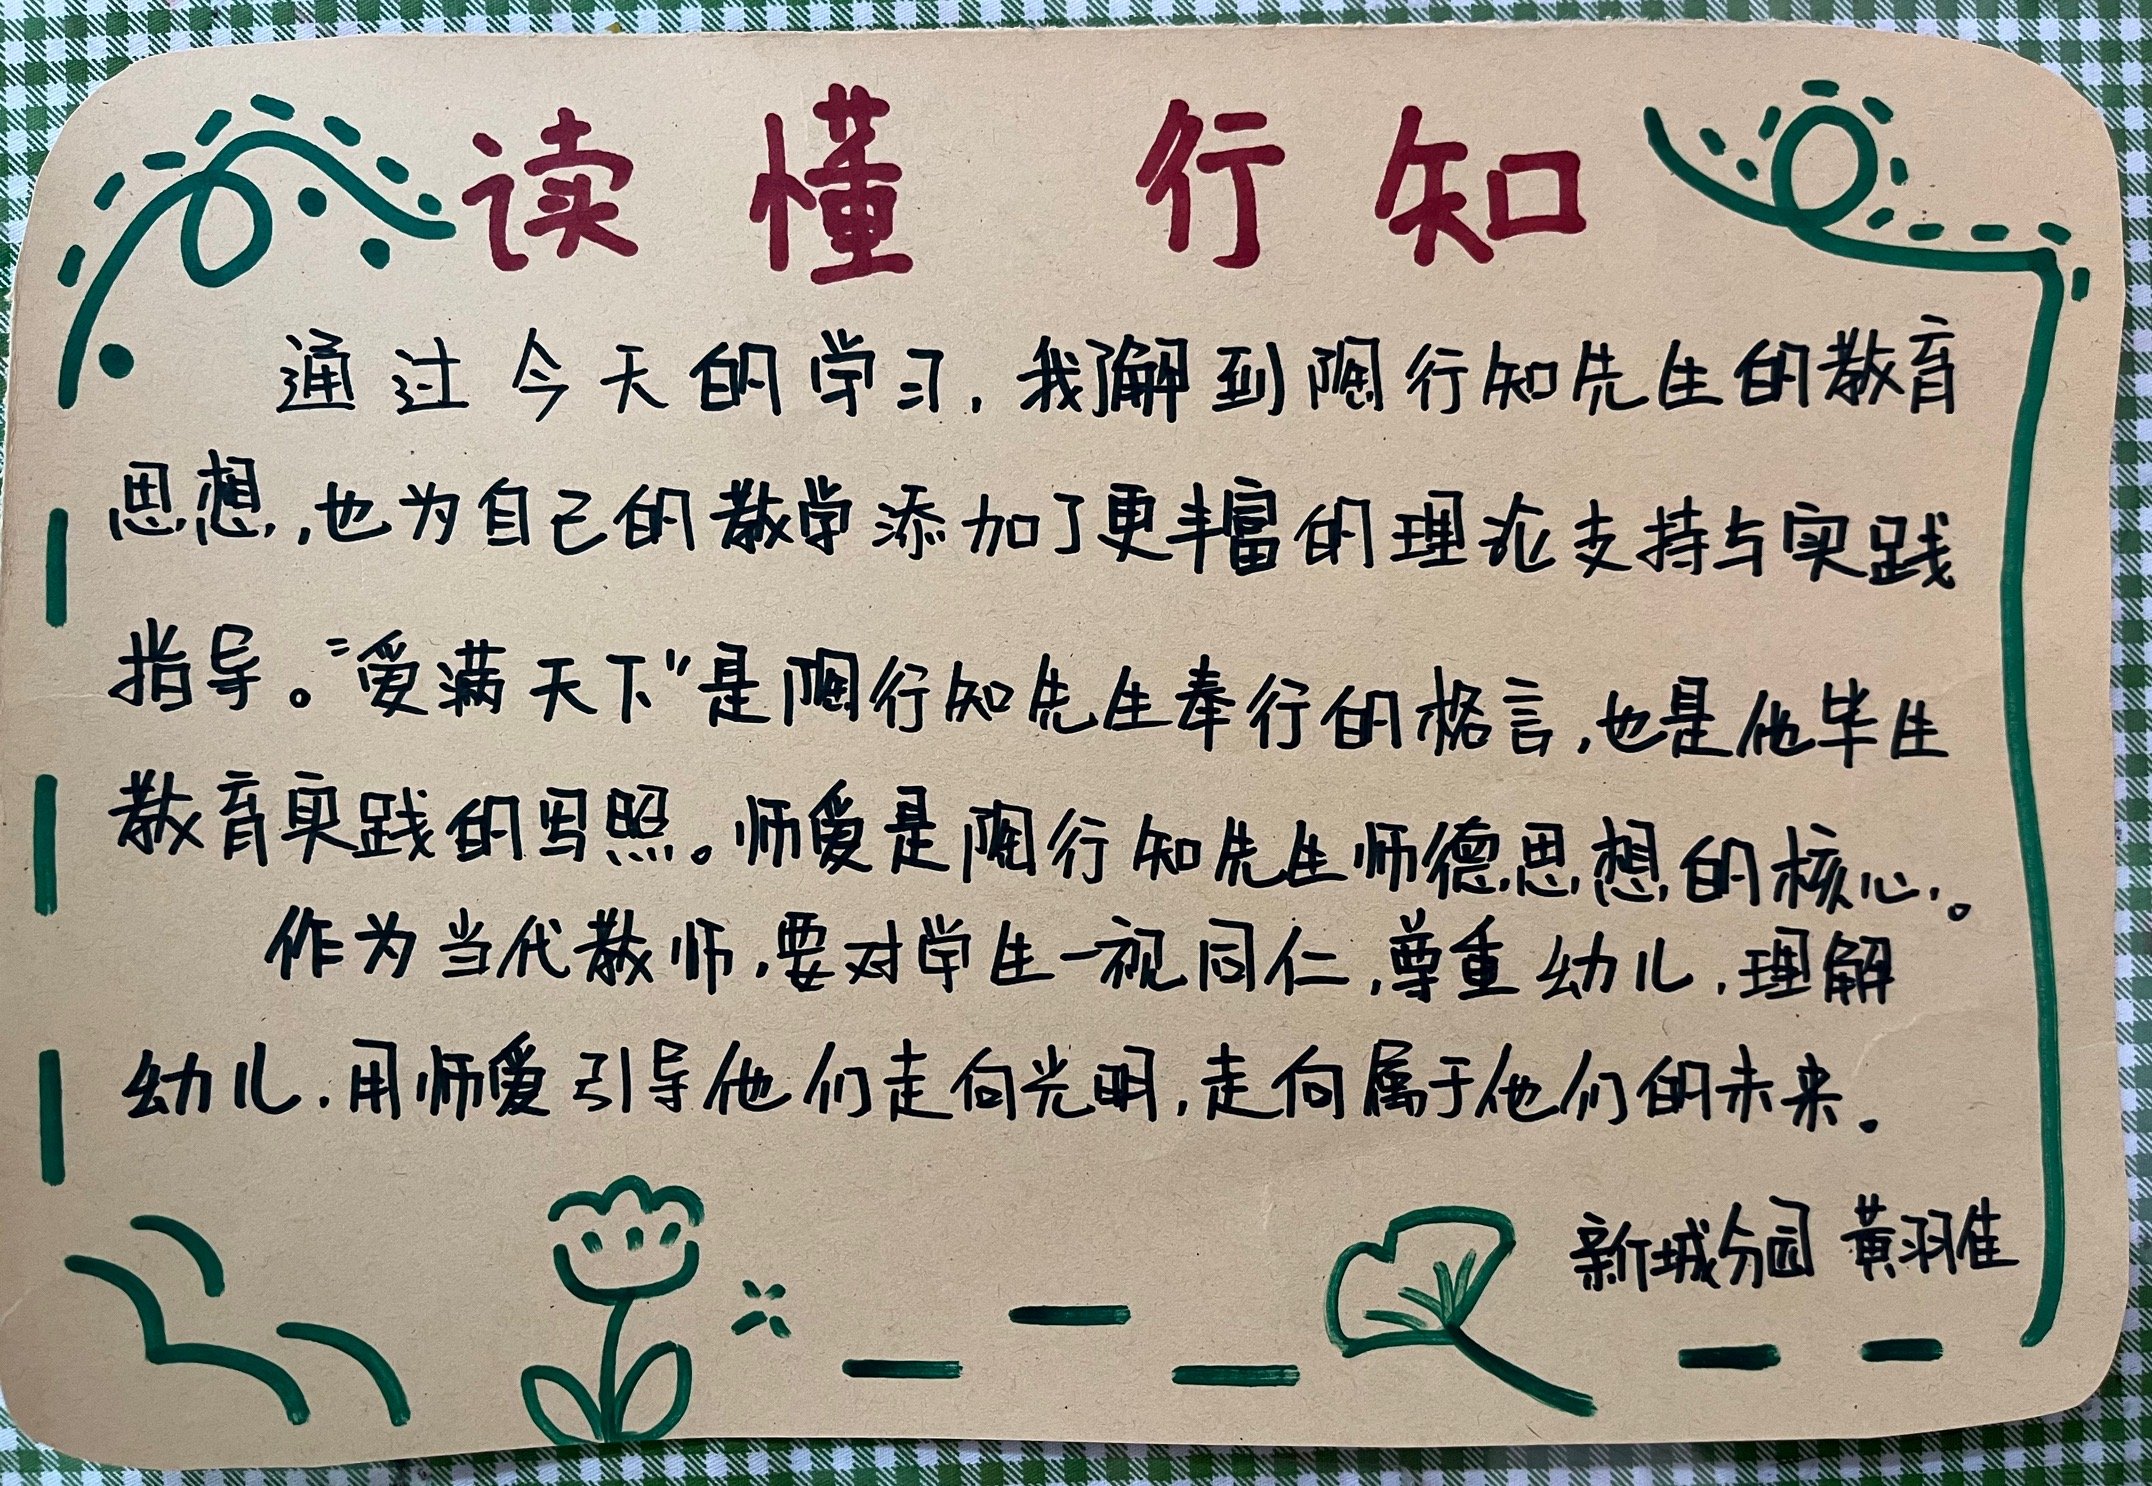 读懂 行知
通过今天的学习，我了解到陶行知先生的教育
思想，也为自己的教学添加了更丰富的理论支持与实践
指导。“爱满天下”是陶行知先生奉行的格言，也是他毕生
教育实践的写照。师爱是陶行知先生师德思想的核心。
作为当代教师，要对学生一视同仁，尊重幼儿，理解
幼儿，用师爱引导他们走向光明，走向属于他们的未来。
新城分园 黄羽佳